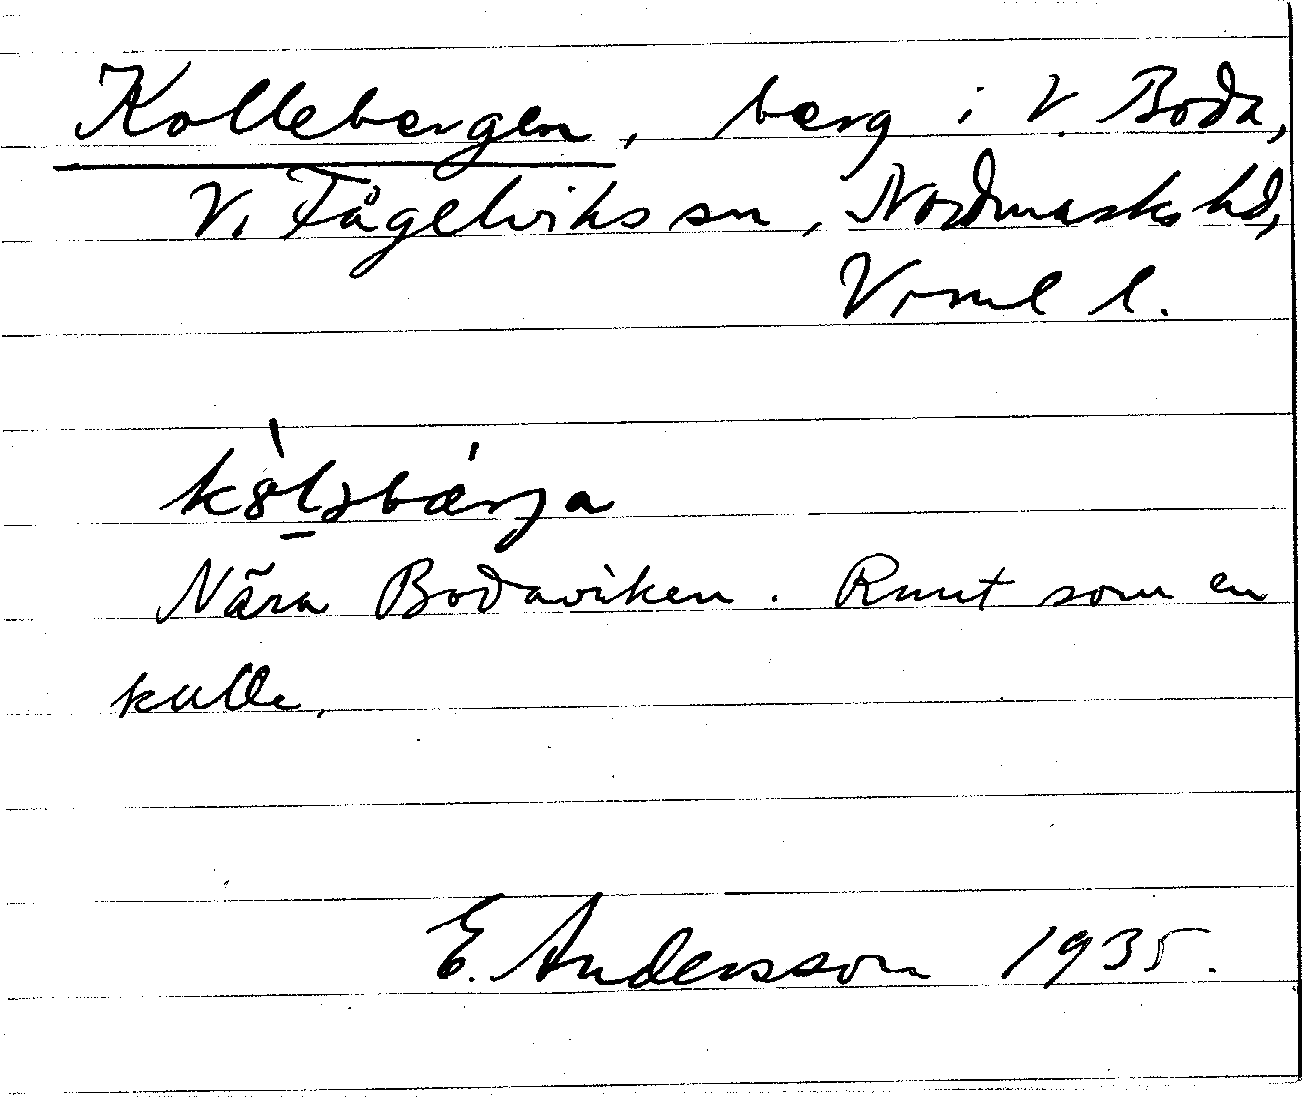 Kollebergen, berg i V. Boda,
V. Fågelviks sn, Nordmarks hd,
Vrml l.
Nära Bodaviken. Runt som en
kulle.
E. Andersson 1935.